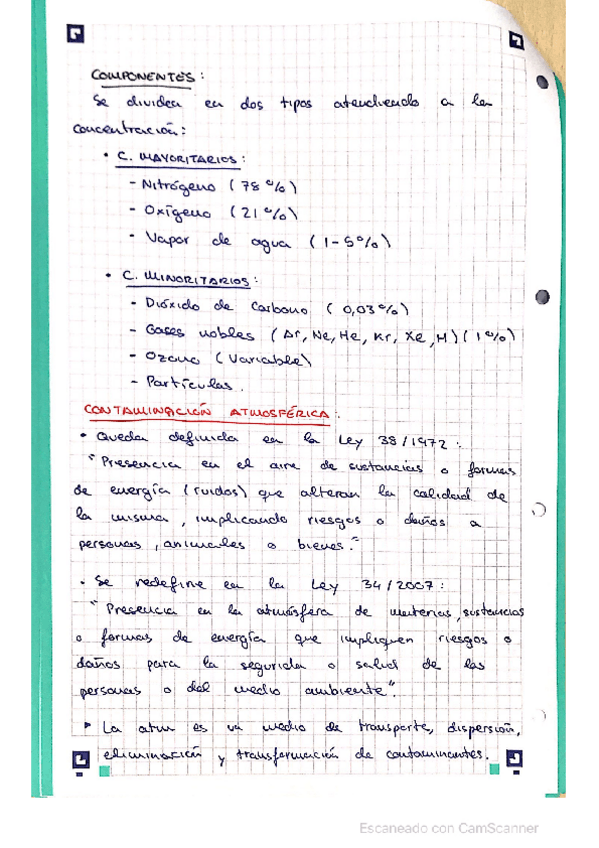 COMPONENTES:
Se dividen en dos tipos atendiendo a la
concentración:
• C. MAYORITARIOS:
- Nitrógeno (78%)
- Oxígeno (21%)
- Vapor de agua (1-5%)
• C. MINORITARIOS:
- Dióxido de Carbono (0,03%)
- Gases nobles (Ar, Ne, He, Kr, Xe, H) (1%)
- Ozono (Variable)
- Partículas.
CONTAMINACIÓN ATMOSFÉRICA:
• Queda definida en la Ley 38/1972:
"Presencia en el aire de sustancias o formas
de energía (ruidos) que alteran la calidad de
la misma, implicando riesgos o daños a
personas, animales o bienes."
• Se redefine en la Ley 34/2007:
"Presencia en la atmósfera de materias, sustancias
o formas de energía que impliquen riesgos o
daños para la segurida o salud de las
personas o del medio ambiente".
▸ La atm es un medio de transporte, dispersión,
eliminación y transformación de contaminantes.
Escaneado con CamScanner